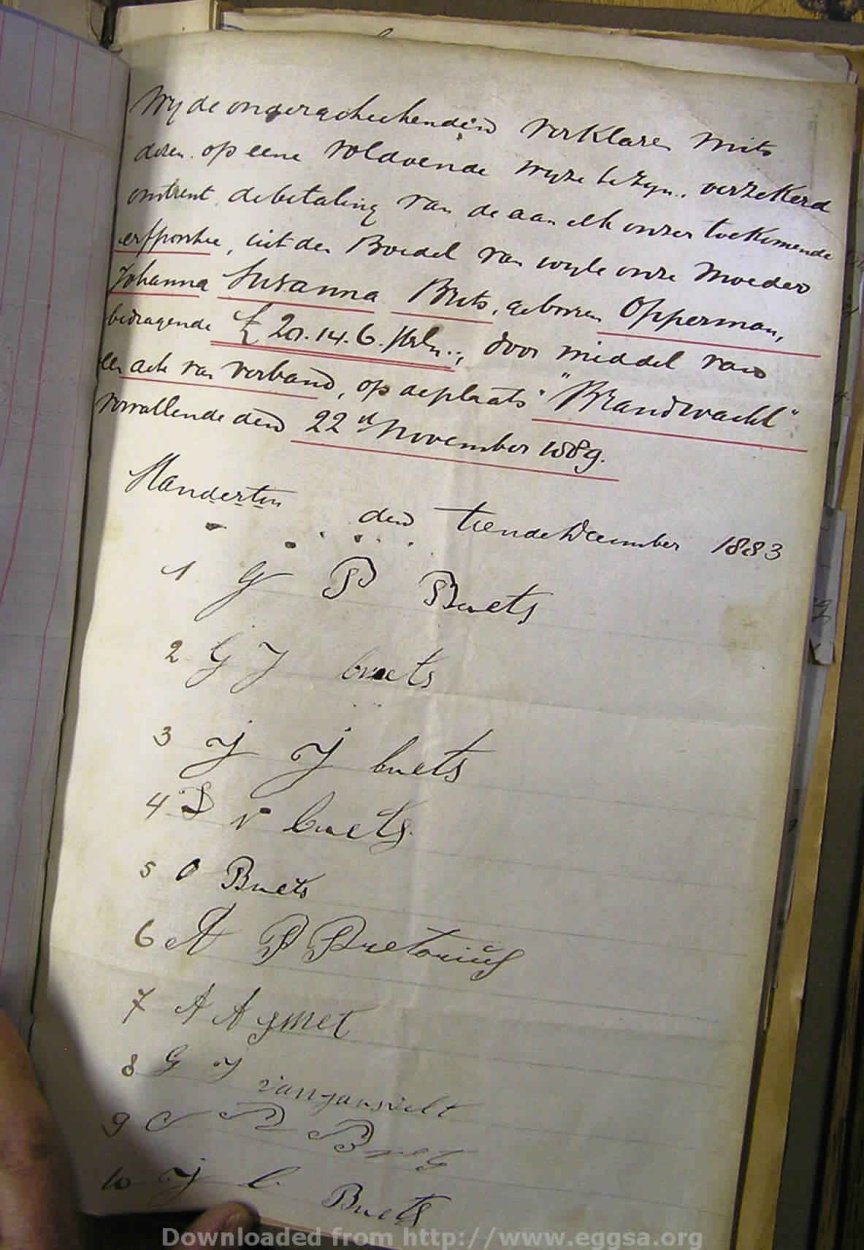 Wy de ongergeteekenden verklaren mits
dezen op eene voldoende wyze te zyn, verzekerd
omtrent de betaling van de aan elk onzer toekomende
erfportie, uit den Boedel van wyle onze Moeder
Johanna Susanna Brits, geboren Opperman,
bedragende £ 20.14.6. Strln., door middel van
een acte van verband, op de plaats "Brandwacht"
vervallende den 22d November 1889.
Standerton den tiende December 1883
1 G P Buets
2 G J bruets
3 J J buets
4 S v buets
5 O Buets
6 A P Pretorius
7 A A Smet
8 G J van jansvelt
9 C P Brets
10 J C Buets
Downloaded from http://www.eggsa.org